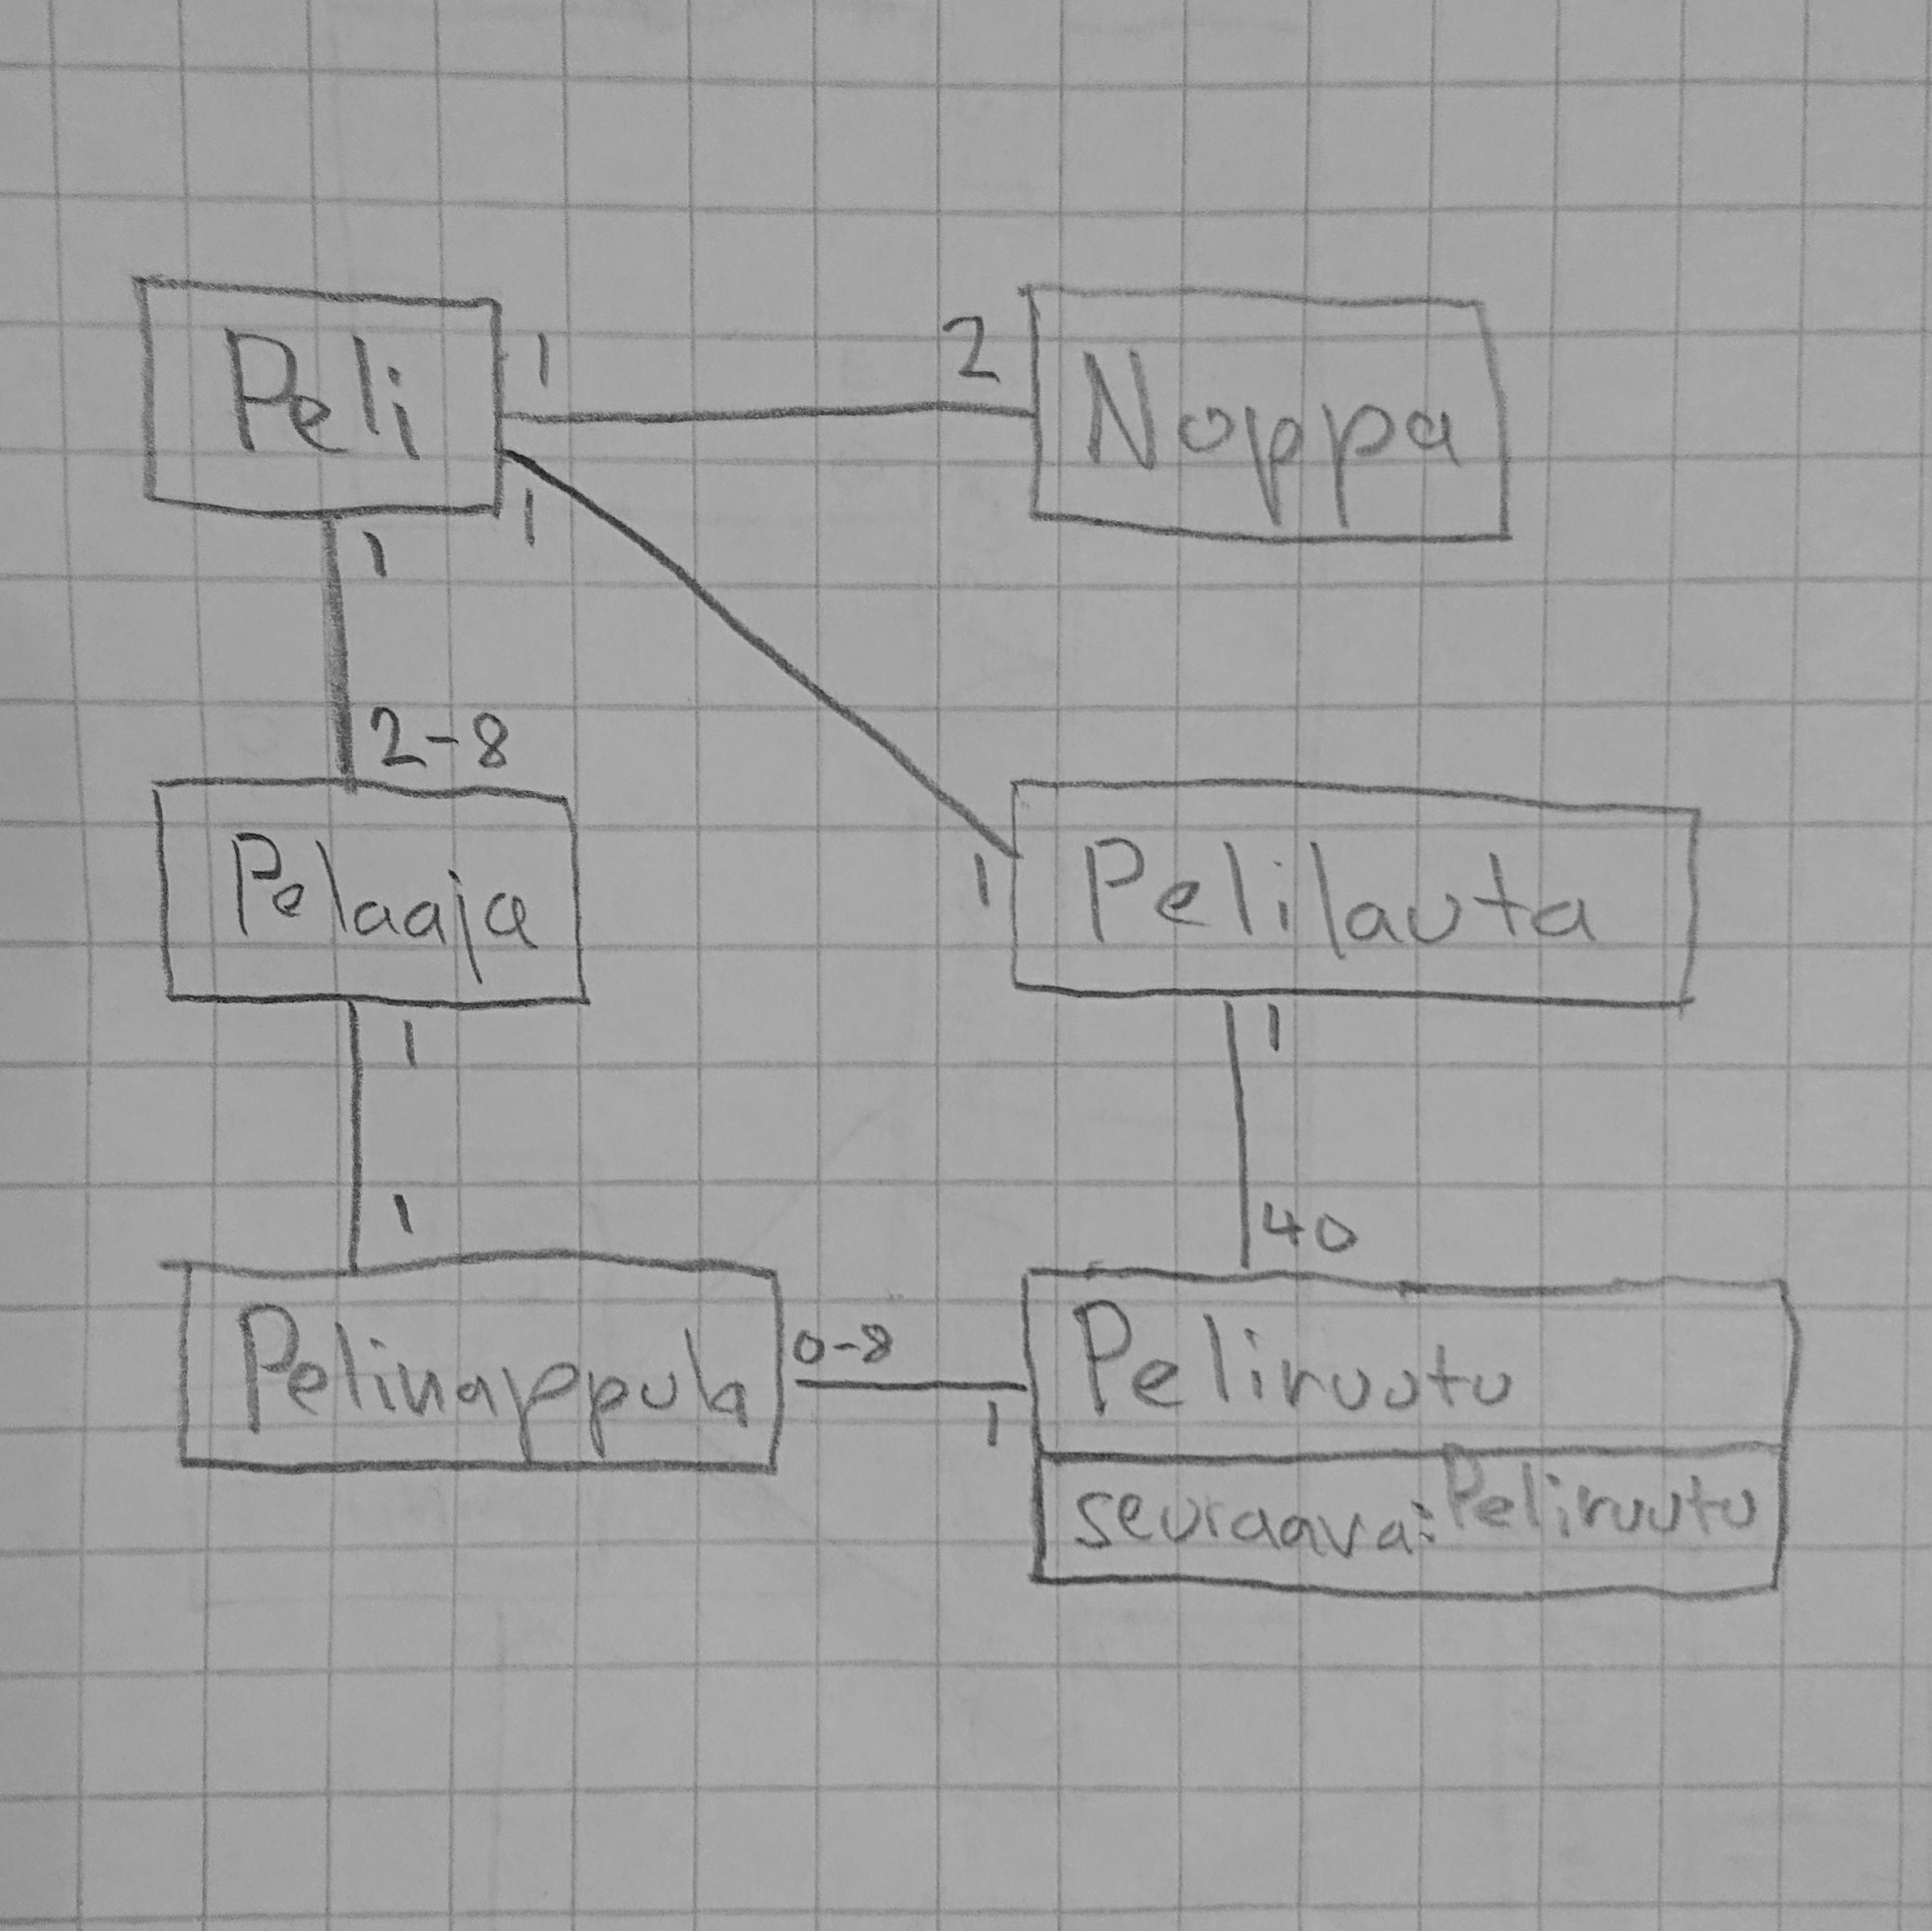 Peli
1
2
Noppa
1
1
2-8
Pelaaja
1
Pelilauta
1
1
1
40
Pelinappula
0-8
1
Peliruutu
seuraava: Peliruutu